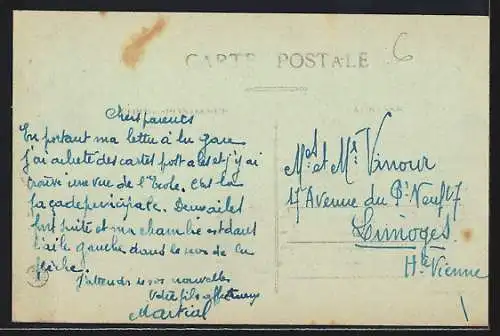 CARTE POSTALE
6
Chers parents
En portant ma lettre à la gare
j'ai acheté des cartes postales et j'y ai
trouvé une vue de l'Ecole. C'est la
façade principale. Deux ailes
font suite et ma chambre est dans
l'aile gauche dans le sens de la
flèche.
J'attends vos nouvelles
Votre fils affectueux
Martial
Met Mr Vinour
17 Avenue du Pt Neuf 17
Limoges
Hte Vienne